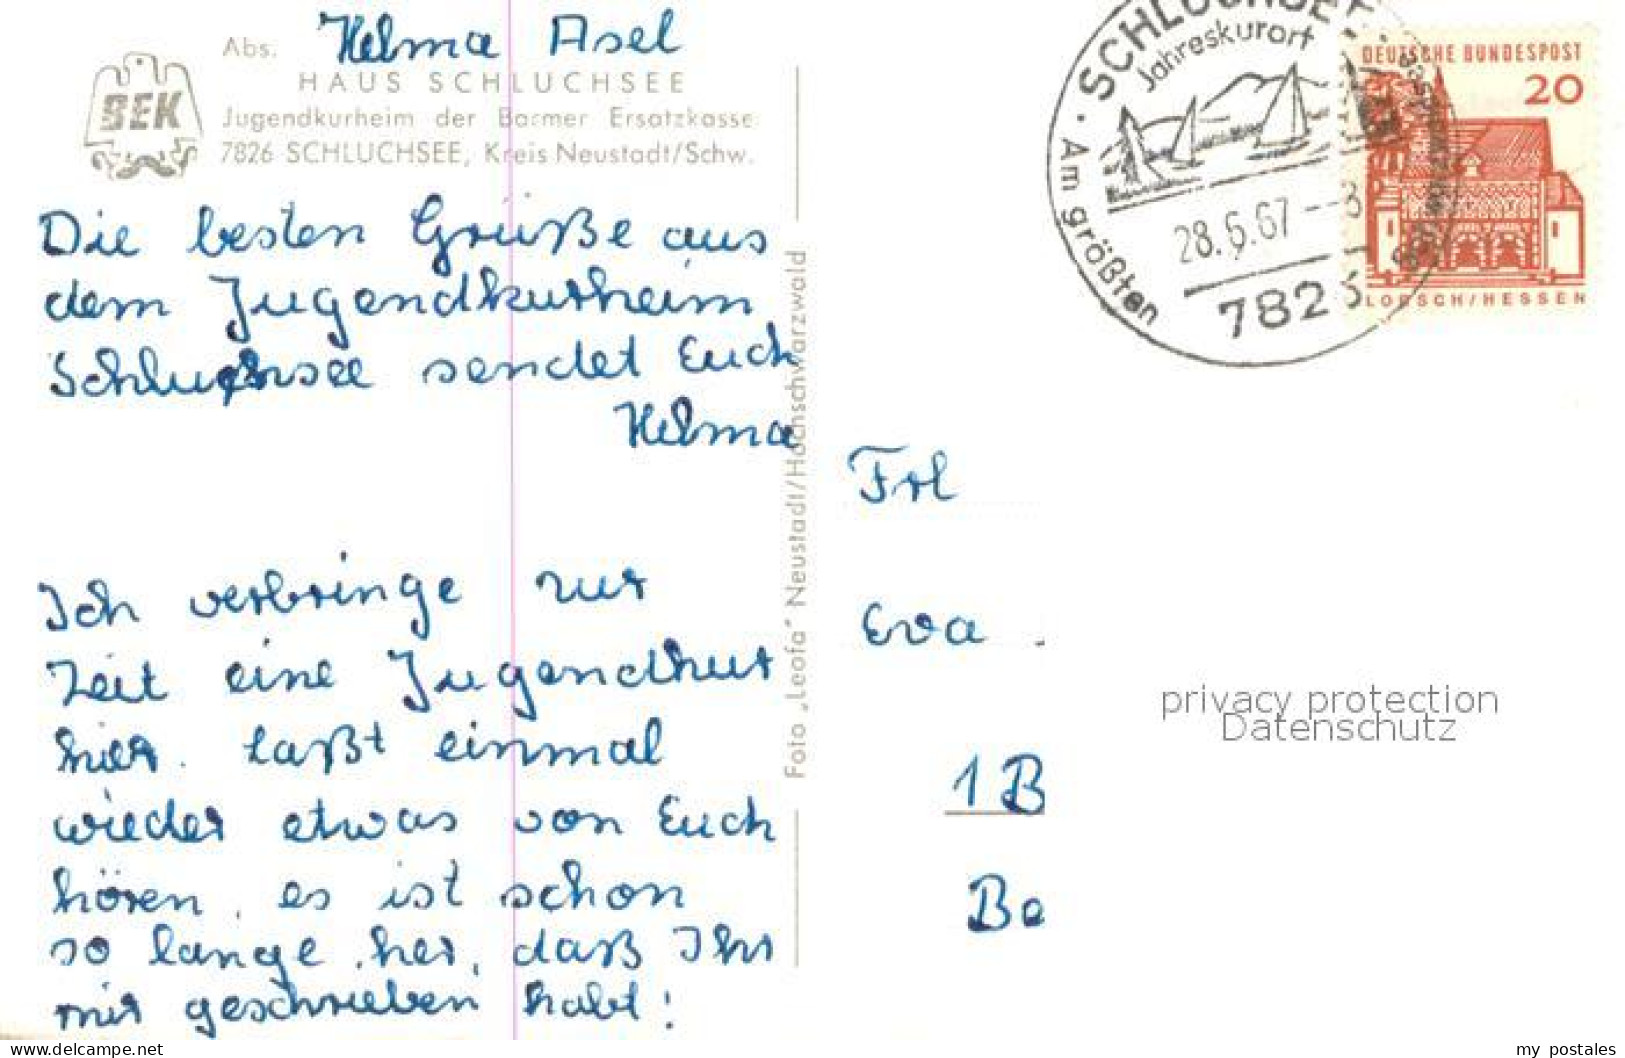 Abs. Helma Asel
BEK
HAUS SCHLUCHSEE
Jugendkurheim der Barmer Ersatzkasse
7826 SCHLUCHSEE, Kreis Neustadt/Schw.
Die besten Grüße aus
dem Jugendkurheim
Schluchsee sendet Euch
Helma
Ich verbringe zur
Zeit eine Jugendkur
hier. Laßt einmal
wieder etwas von Euch
hören, es ist schon
so lange her, daß Ihr
mir geschrieben habt!
Foto „Leofa" Neustadt/Hochschwarzwald
SCHLUCHSEE
Jahreskurort
Am größten
28.6.67--8
7826
DEUTSCHE BUNDESPOST
20
LORSCH/HESSEN
Frl
Eva
1 B
Be
privacy protection
Datenschutz
www.delcampe.net
my_postales